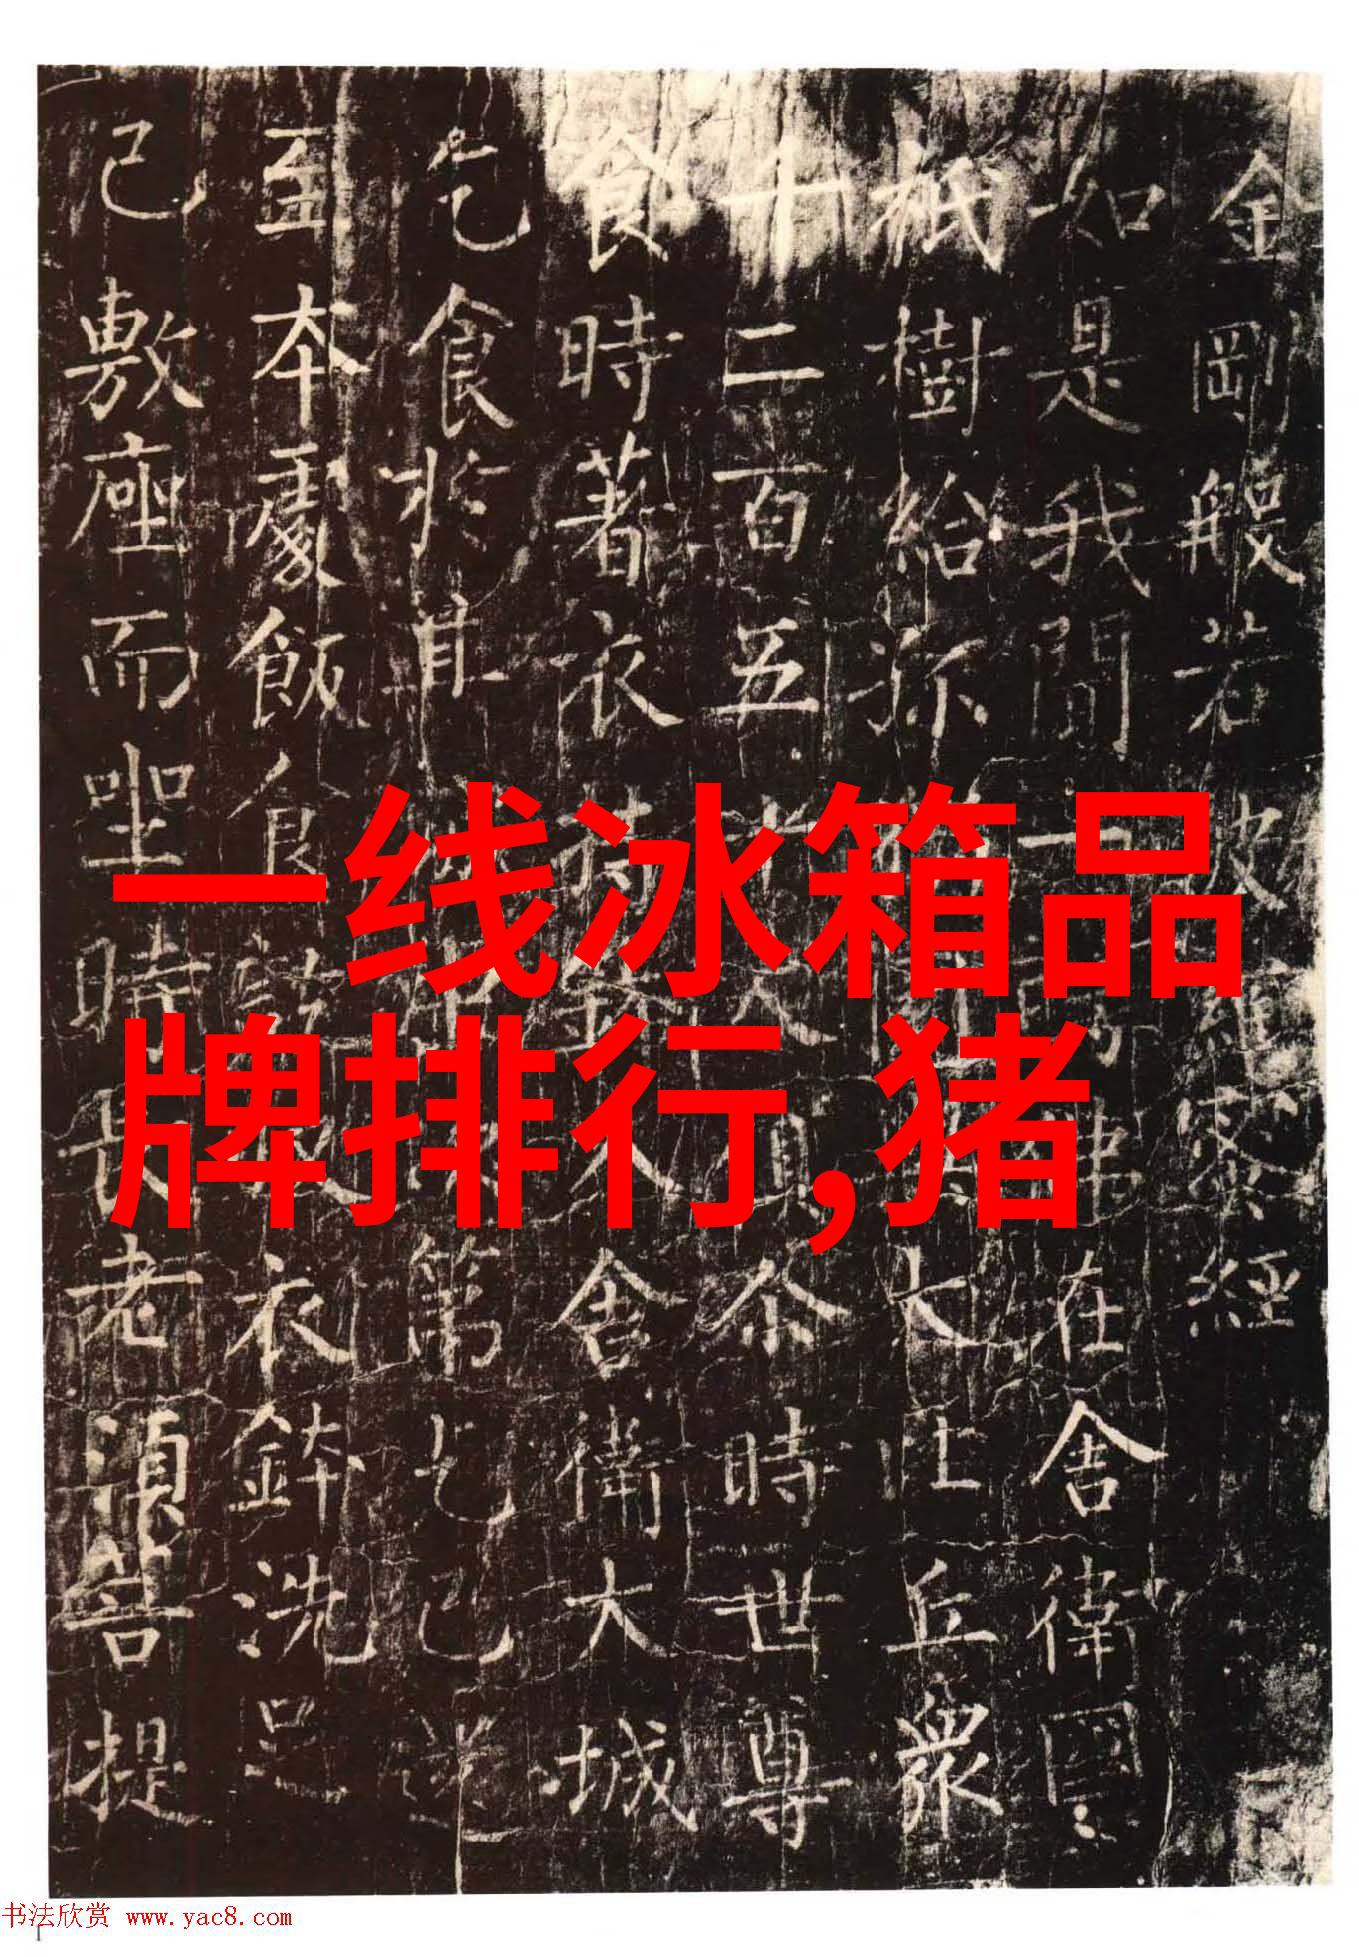 金剛般若波羅蜜經
如是我聞一佛在舍衛國
祇樹給孤大比丘衆
十二百五十人俱尒時世尊
食時著衣持鉢入舍衛大城
乞食於其城中次第乞已還
至本處飯食訖收衣鉢洗足
已敷座而坐時長老湏菩提
一线冰箱品
牌排行,猪
书法欣赏 www.yac8.com